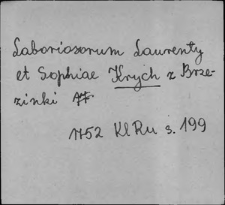 Laboriosorum Laurenty
et Sophiae Krych z Brze-
zinki
1752 Kl Ru s. 199